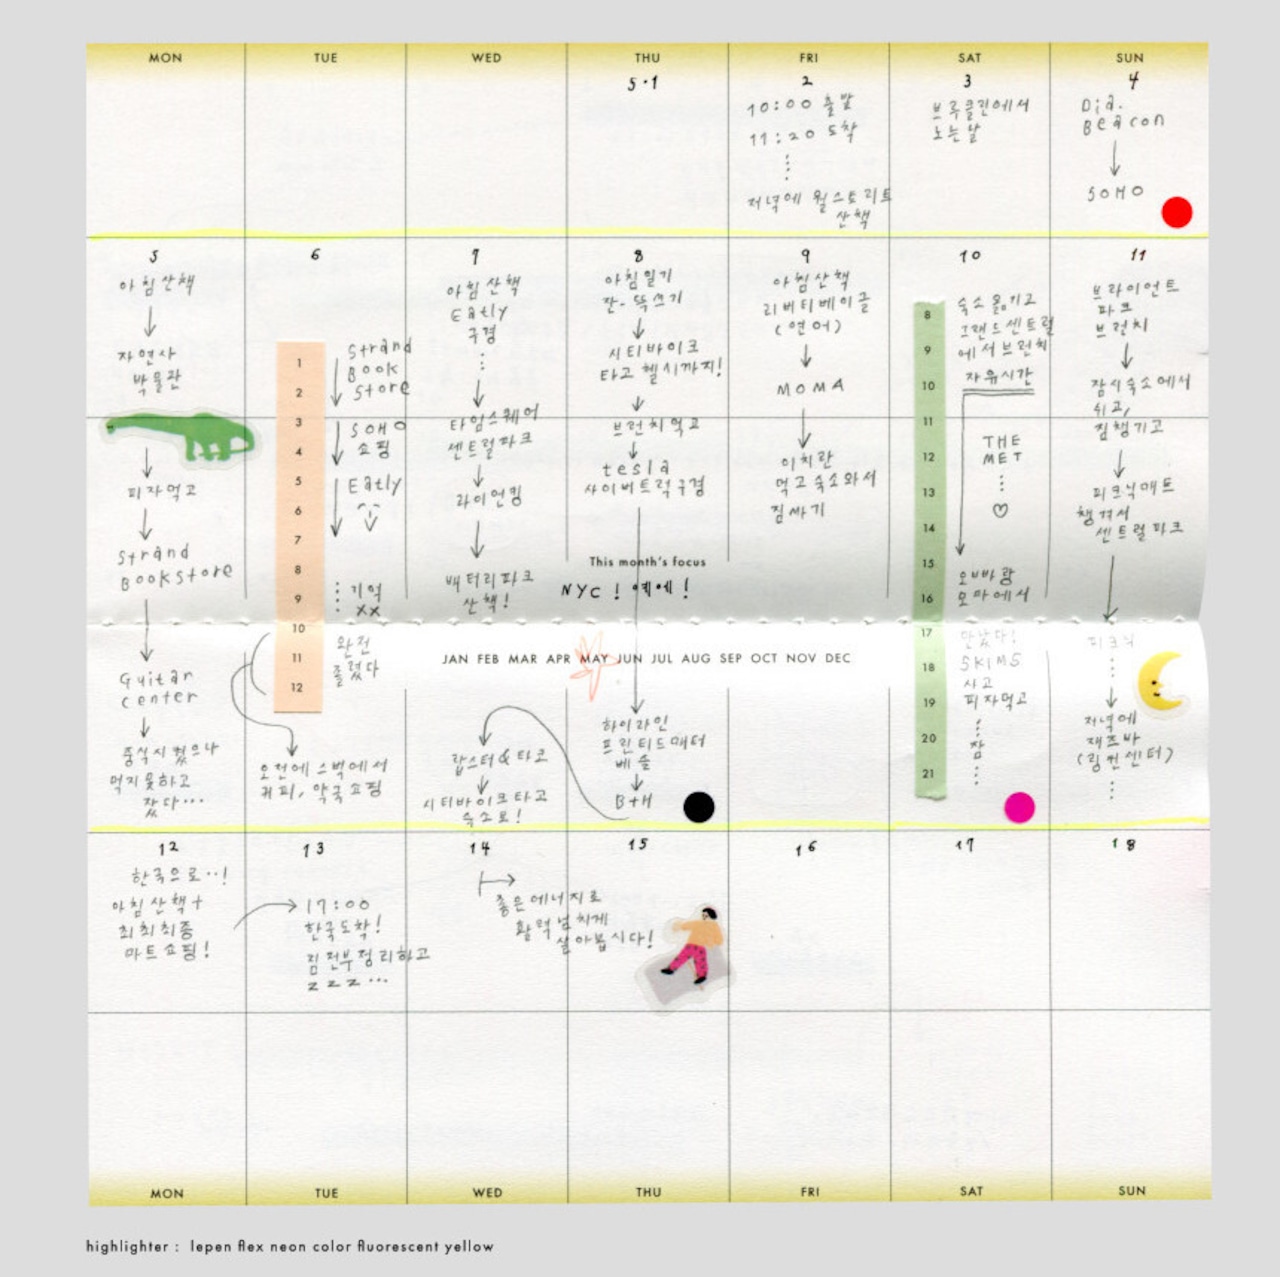 MON TUE WED THU FRI SAT SUN
5·1
2
10:00 출발
11:20 도착
저녁에 월스트리트
산책
3
브루클린에서
노는날
4
Dia.
Beacon
SOHO
5
아침산책
자연사
박물관
피자먹고
Strand
Bookstore
Guitar
center
중식시켰으나
먹지못하고
잤다...
6
1
2
3
4
5
6
7
8
9
10
11
12
Strand
Book
Store
SOHO
쇼핑
Eatly
기억
xx
완전
졸렸다
오전에 스벅에서
커피, 약국쇼핑
7
아침산책
Eatly
구경
타임스퀘어
센트럴파크
라이언킹
배터리파크
산책!
랍스터&타코
시티바이크타고
숙소로!
8
아침일기
잔-뜩쓰기
시티바이크
타고 첼시까지!
브런치먹고
tesla
사이버트럭구경
하이라인
프린티드매터
베슬
B+H
9
아침산책
리버티베이글
(연어)
MOMA
이치란
먹고숙소와서
짐싸기
10
8
9
10
11
12
13
14
15
16
17
18
19
20
21
숙소옮기고
그랜드센트럴
에서브런치
자유시간
THE
MET
♡
오빠랑
모마에서
만났다!
SKIMS
사고
피자먹고
잠
11
브라이언트
파크
브런치
잠시숙소에서
쉬고,
짐챙기고
피크닉매트
챙겨서
센트럴파크
피크닉
저녁에
재즈바
(링컨센터)
This month's focus
NYC! 예에!
JAN FEB MAR APR MAY JUN JUL AUG SEP OCT NOV DEC
12
한국으로..!
아침산책+
최최최종
마트쇼핑!
13
17:00
한국도착!
짐전부정리하고
zzz...
14
좋은에너지로
활력넘치게
살아봅시다!
15
16
17
18
MON TUE WED THU FRI SAT SUN
highlighter : lepen flex neon color fluorescent yellow